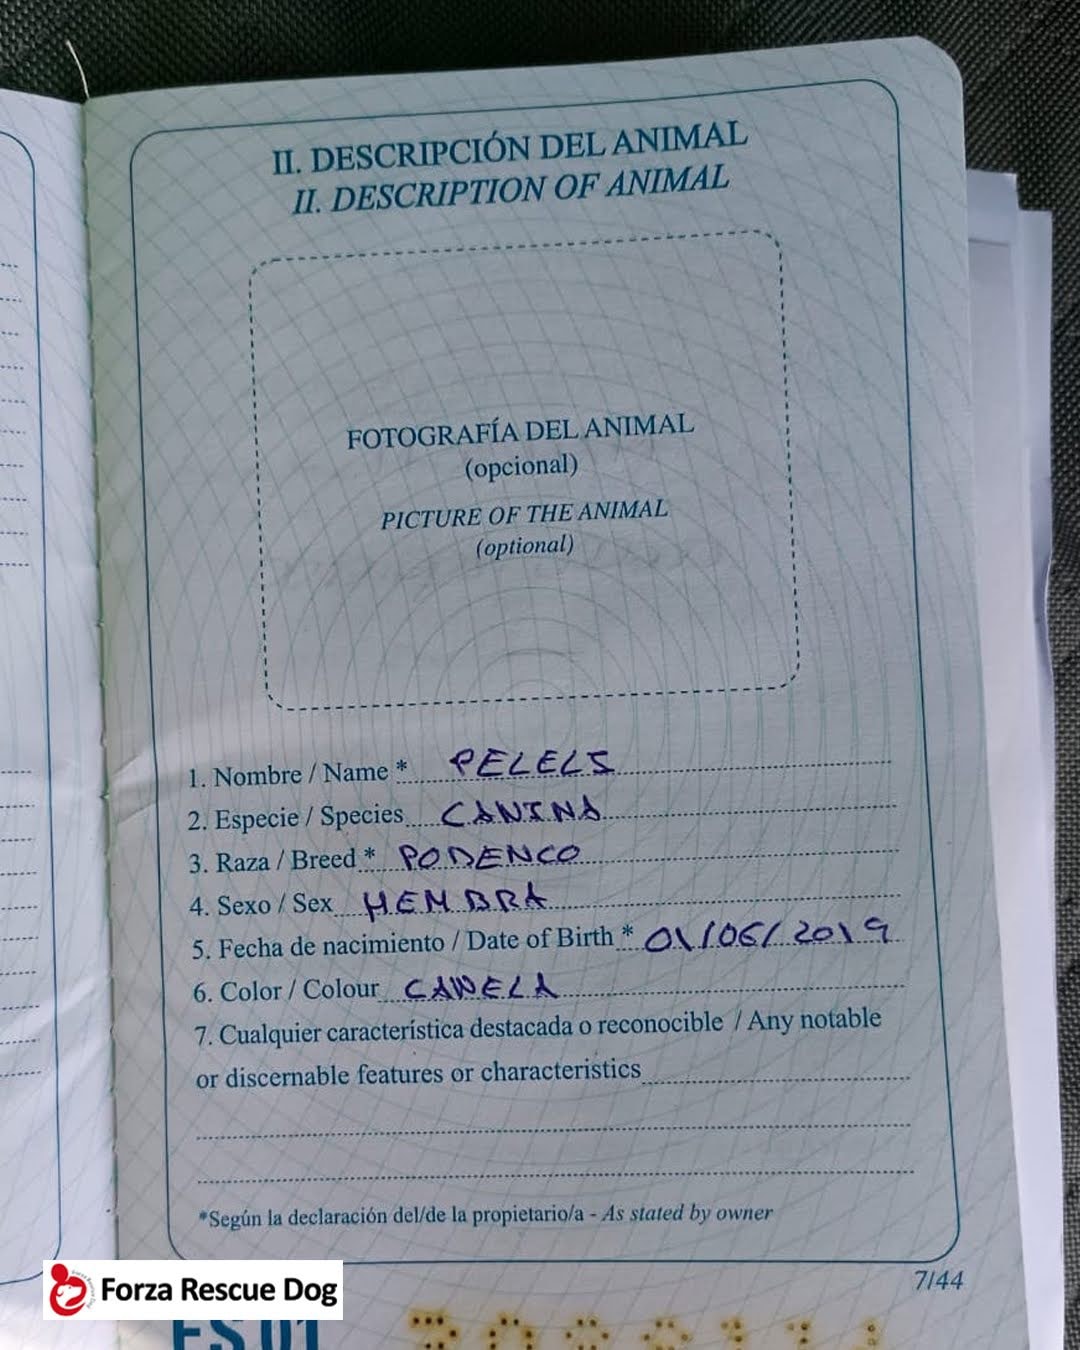 II. DESCRIPCIÓN DEL ANIMAL
II. DESCRIPTION OF ANIMAL
FOTOGRAFÍA DEL ANIMAL
(opcional)
PICTURE OF THE ANIMAL
(optional)
1. Nombre / Name * PELELS
2. Especie / Species CANINA
3. Raza / Breed * PODENCO
4. Sexo / Sex HEMBRA
5. Fecha de nacimiento / Date of Birth * 01/06/2019
6. Color / Colour CANELA
7. Cualquier característica destacada o reconocible / Any notable
or discernable features or characteristics
*Según la declaración del/de la propietario/a - As stated by owner
7/44
Forza Rescue Dog
ES 01